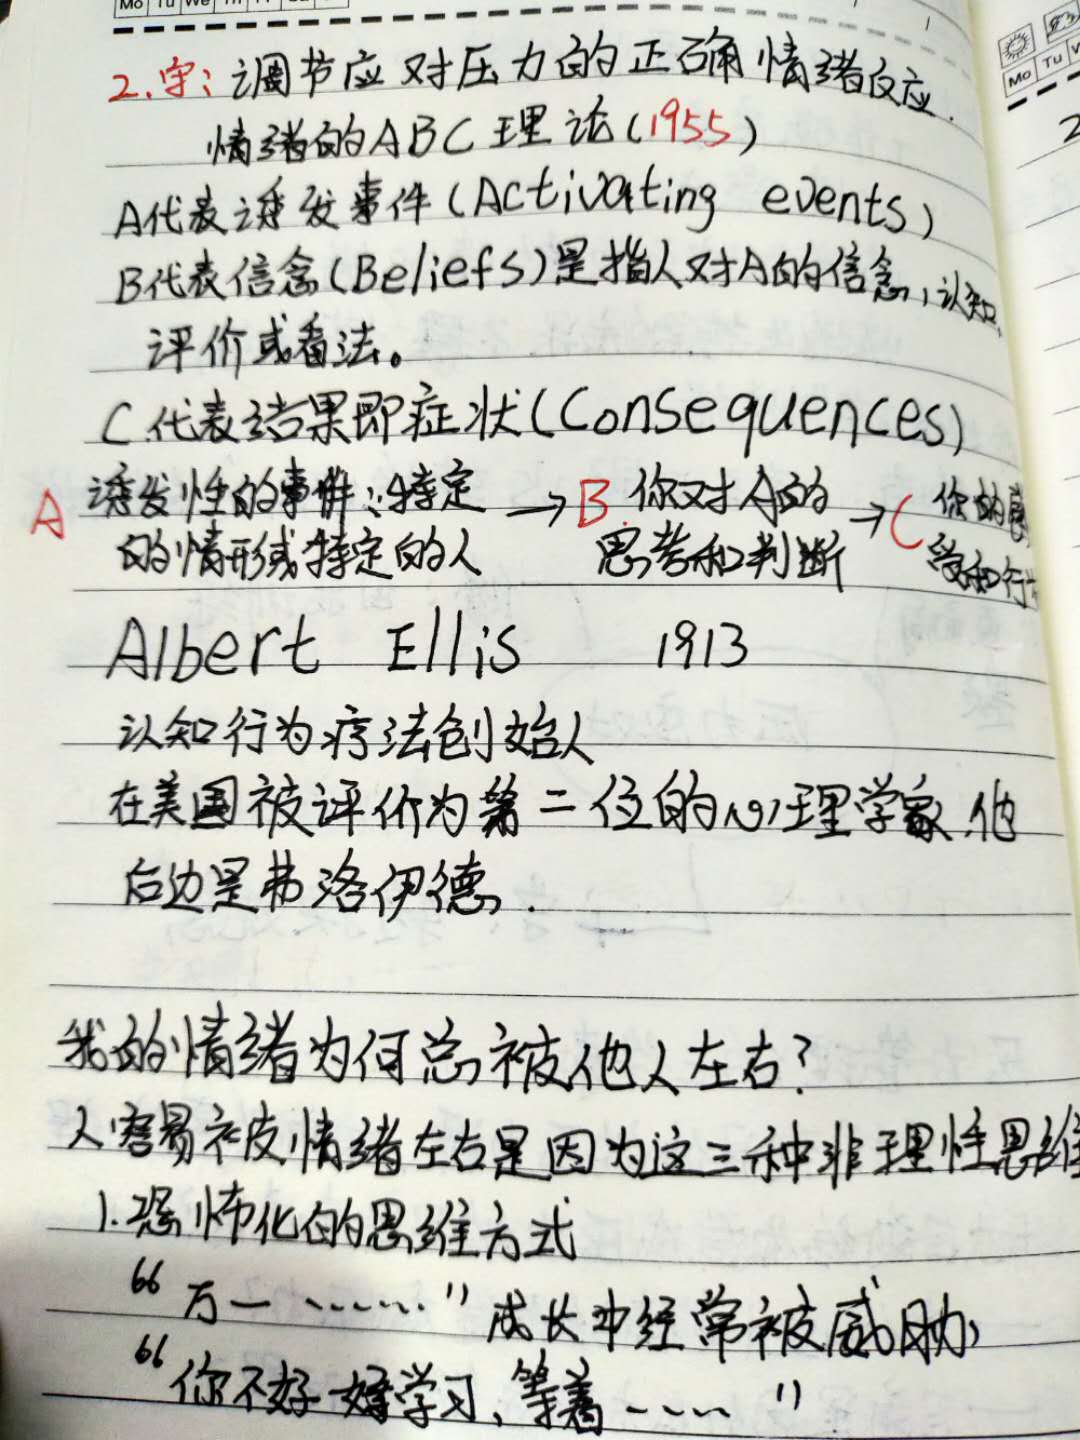 Mo Tu We Th Fr
2.守:调节应对压力的正确情绪反应.
情绪的ABC理论(1955)
A代表诱发事件(Activating events)
B代表信念(Beliefs)是指人对A的信念,认知、
评价或看法。
C.代表结果即症状(Consequences)
A 诱发性的事件:特定的情形或特定的人 → B. 你对A的思考和判断 → C 你的感受和行
Albert Ellis 1913
认知行为疗法创始人
在美国被评价为第二位的心理学家.他
后边是弗洛伊德.
我的情绪为何总被他人左右?
人容易被情绪左右是因为这三种非理性思维
1.恐怖化的思维方式
“万一……” 成长中经常被威胁
“你不好好学习、等着……”
Mo Tu
2